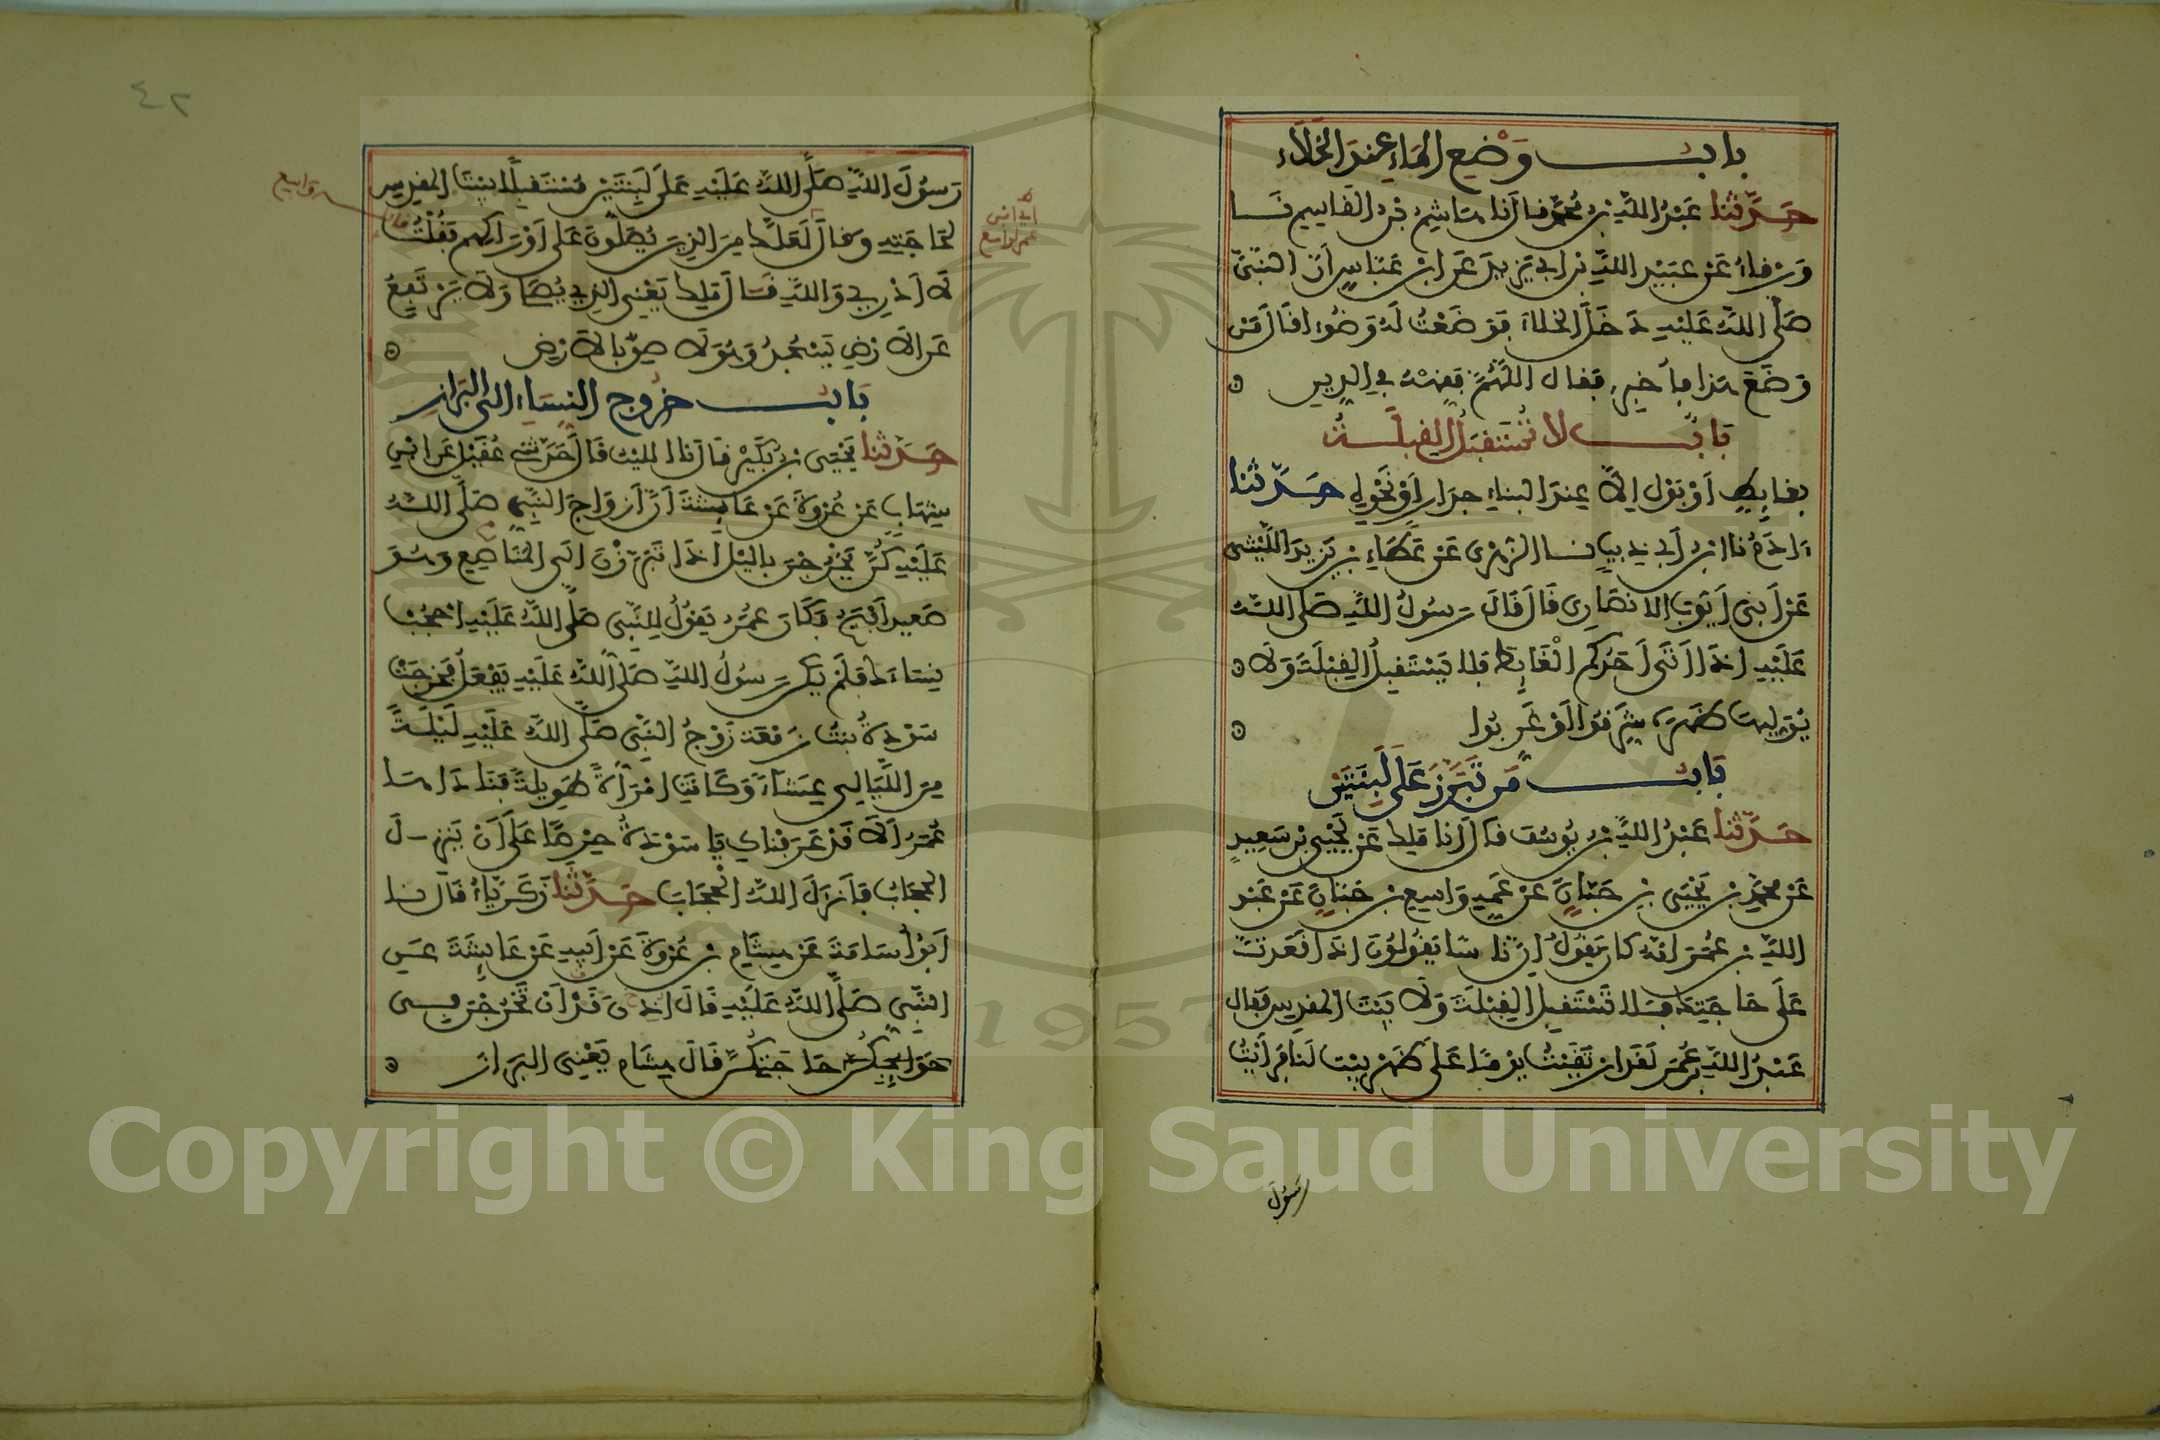 باب وضع الماء عند الخلاء
حدثنا عبد الله بن محمد قال أنا هاشم بن القاسم نا
ورقاء عن عبيد الله بن أبي يزيد عن ابن عباس أن النبي
صلى الله عليه دخل الخلاء فوضعت له وضوءا قال من
وضع هذا فأخبر فقال اللهم فقهه في الدين
باب لا تستقبل القبلة
بغايط أو بول إلا عند البناء جدار أو نحوه حدثنا
ءادم نا ابن أبي ذيب نا الزهري عن عطاء بن يزيد الليثي
عن أبي أيوب الانصاري قال قال رسول الله صلى الله
عليه إذا أتى أحدكم الغايط فلا يستقبل القبلة ولا
يولها ظهره شرقوا أو غربوا
باب من تبرز على لبنتين
حدثنا عبد الله بن يوسف قال أنا ملك عن يحيى بن سعيد
عن محمد بن يحيى بن حبان عن عمه واسع بن حبان عن عبد
الله بن عمر انه كان يقول إن ناسا يقولون إذا قعدت
على حاجتك فلا تستقبل القبلة ولا بيت المقدس فقال
عبد الله بن عمر لقد ارتقيت يوما على ظهر بيت لنا فرأيت
رسول
٤٢
رسول الله صلى الله عليه على لبنتين مستقبلا بيت المقدس
لحاجته وقال لعلك من الذين يصلون على أوراكهم فقلت
لا أدري والله قال ملك يعني الذي يصلي ولا يرتفع
عن الارض يسجد وهو لاصق بالارض
باب خروج النساء الى البراز
حدثنا يحيى بن بكير قال نا الليث قال حدثني عقيل عن ابن
شهاب عن عروة عن عايشة أن أزواج النبي صلى الله
عليه كن يخرجن بالليل اذا تبرزن الى المناصع وهو
صعيد أفيح فكان عمر يقول للنبي صلى الله عليه احجب
نساءك فلم يكن رسول الله صلى الله عليه يفعل فخرجت
سودة بنت زمعة زوج النبي صلى الله عليه ليلة
من الليالي عشاء وكانت امرأة طويلة فناداها
عمر ألا قد عرفناك يا سودة حرصا على أن ينزل
الحجاب فأنزل الله الحجاب حدثنا زكرياء قال نا
أبو أسامة عن هشام بن عروة عن أبيه عن عايشة عن
النبي صلى الله عليه قال اذن قد أن تخرجن في
حاجتكن قال هشام يعني البراز